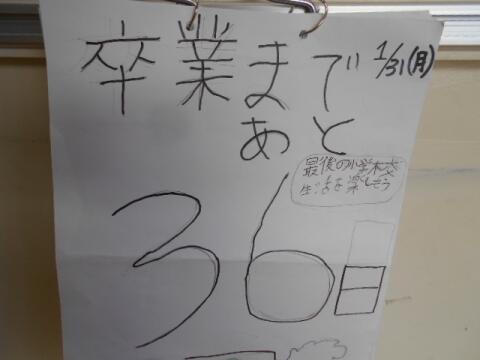 卒業まで 1/31(月)
あと
最後の小学校
生活を楽しもう
36日